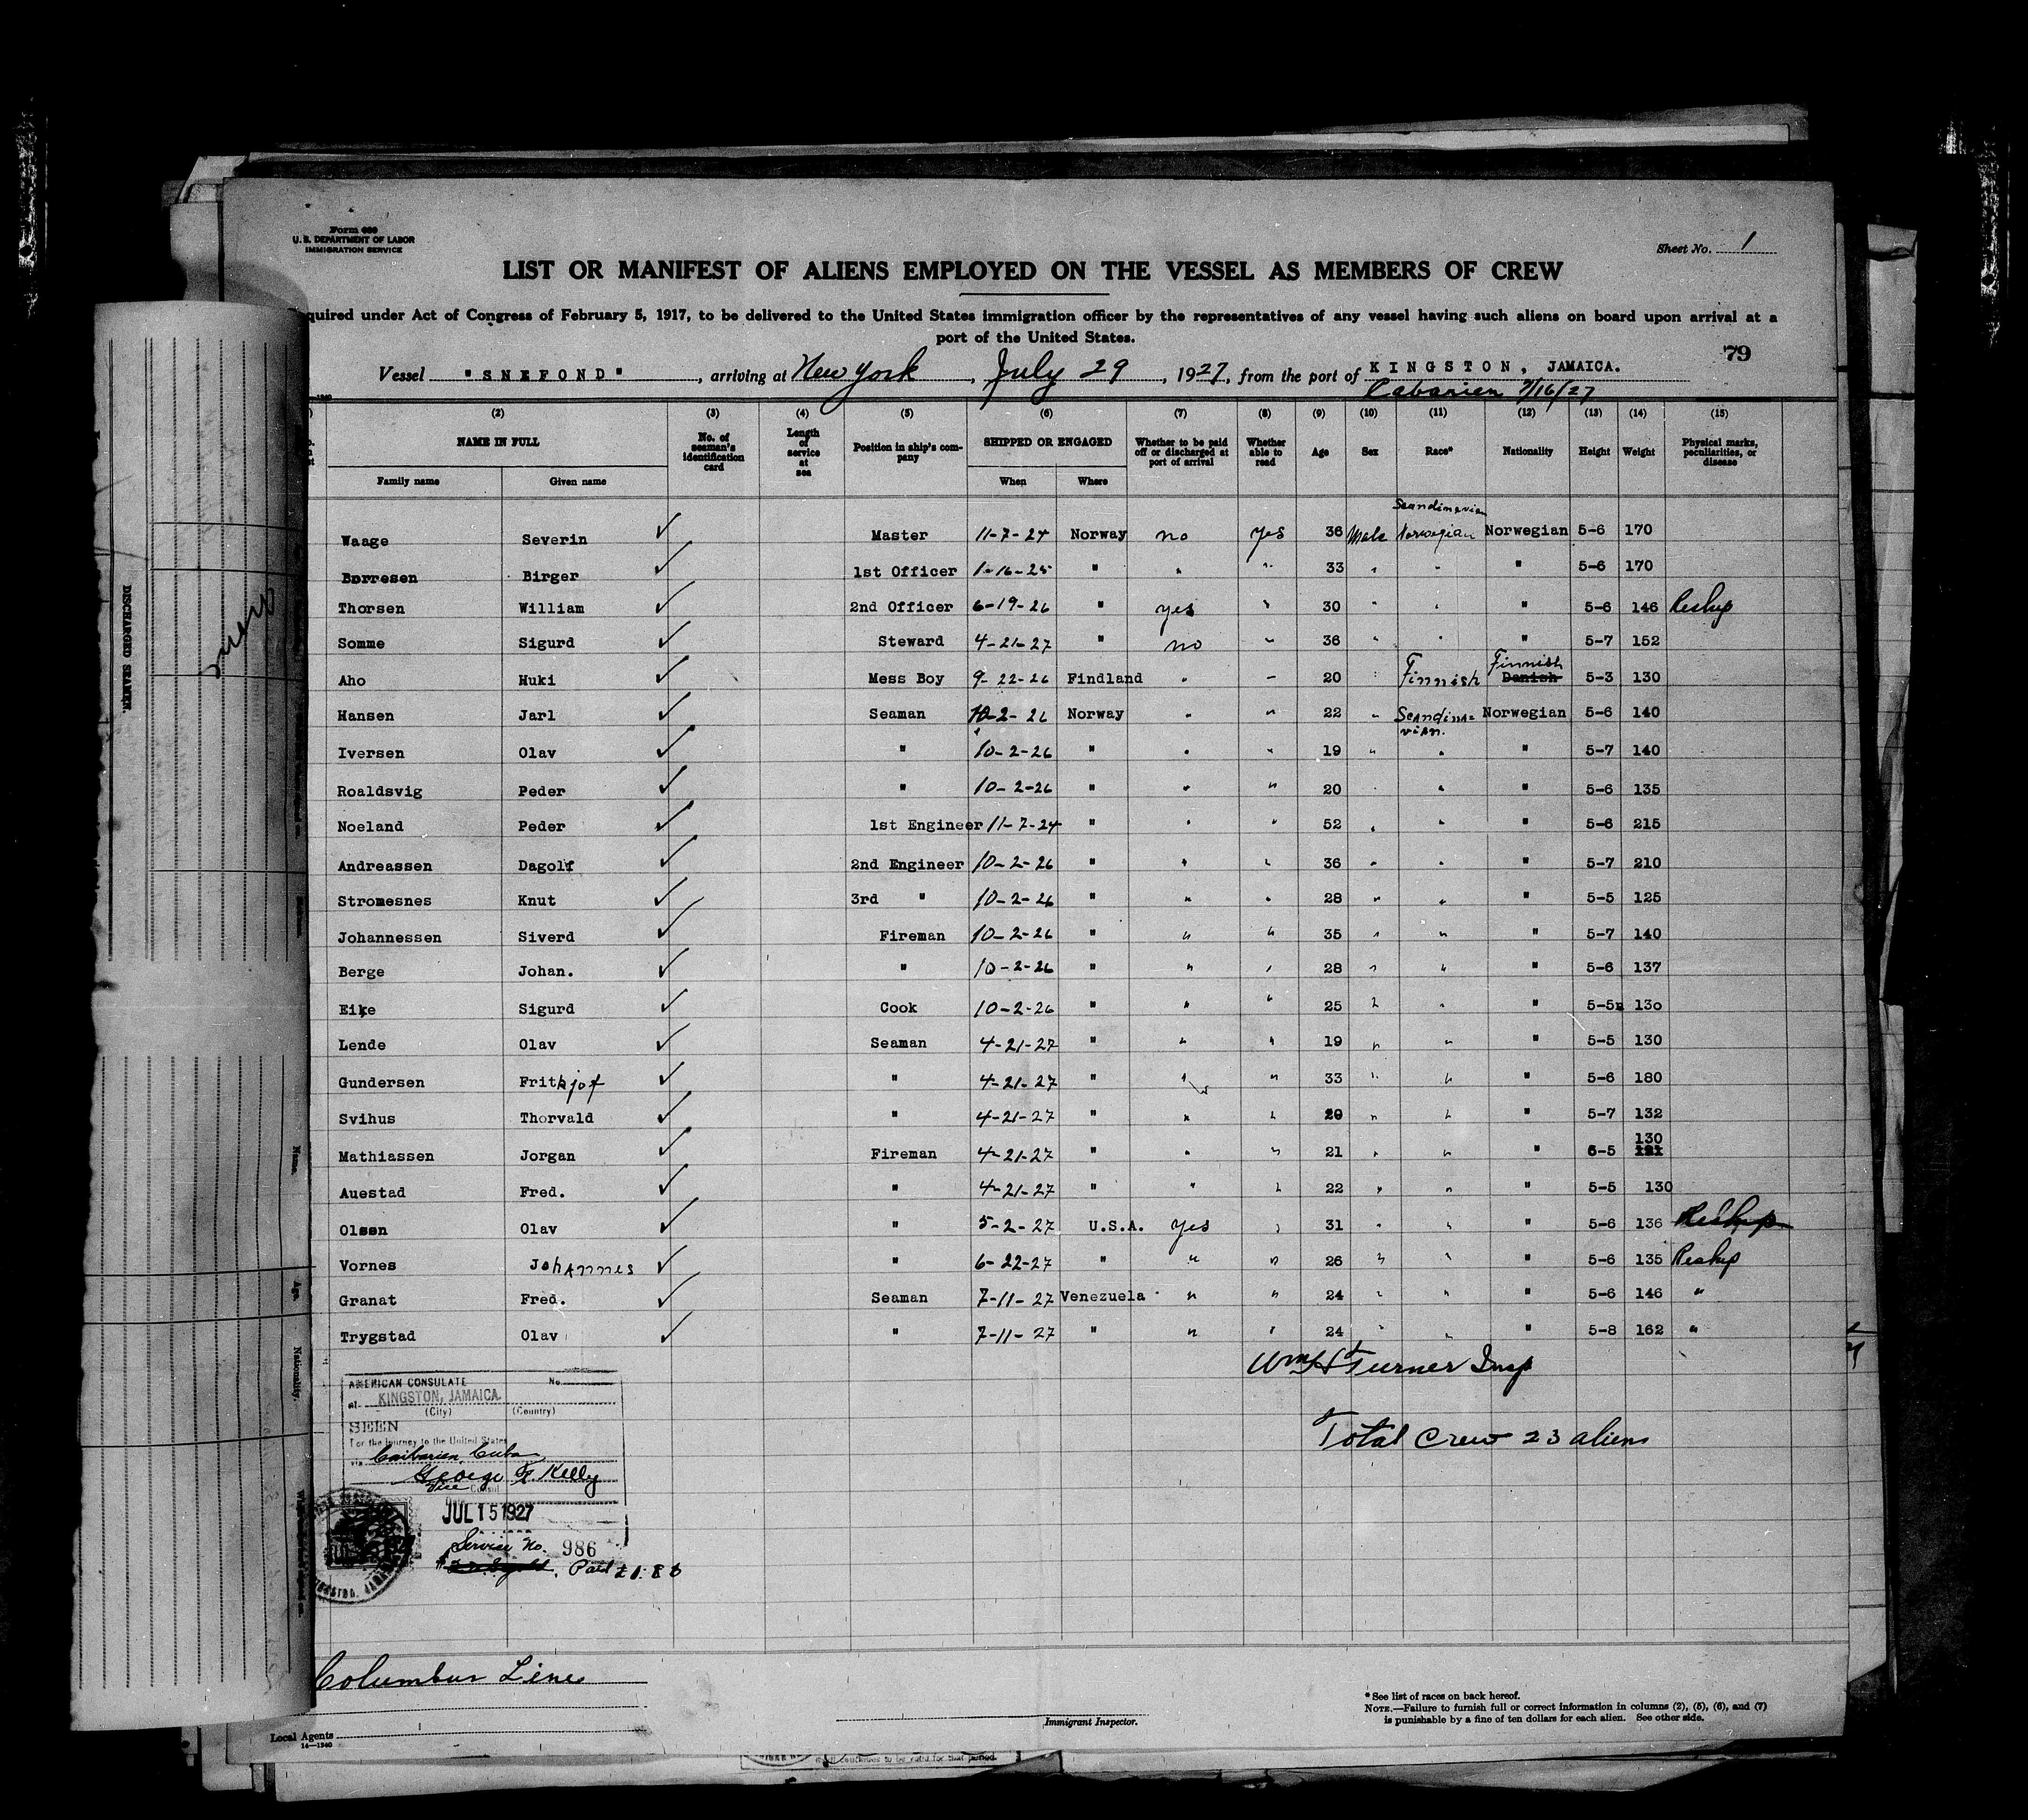 Form 689
U. S. DEPARTMENT OF LABOR
IMMIGRATION SERVICE
Sheet No. 1
LIST OR MANIFEST OF ALIENS EMPLOYED ON THE VESSEL AS MEMBERS OF CREW
quired under Act of Congress of February 5, 1917, to be delivered to the United States immigration officer by the representatives of any vessel having such aliens on board upon arrival at a
port of the United States.
79
Vessel "SNEFOND", arriving at New York, July 29, 1927, from the port of KINGSTON, JAMAICA.
Cabarien 7/16/27
(2) (3) (4) (5) (6) (7) (8) (9) (10) (11) (12) (13) (14) (15)
NAME IN FULL
Family name Given name
No. of seaman's identification card
Length of service at sea
Position in ship's company
SHIPPED OR ENGAGED
When Where
Whether to be paid off or discharged at port of arrival
Whether able to read
Age Sex Race* Nationality Height Weight
Physical marks, peculiarities, or disease
Scandinavian
Waage Severin ✓ Master 11-7-24 Norway no yes 36 Male Norwegian Norwegian 5-6 170
Børresen Birger ✓ 1st Officer 1-16-25 " " " 33 " " " 5-6 170
Thorsen William ✓ 2nd Officer 6-19-26 " yes " 30 " " " 5-6 146 Reship
Somme Sigurd ✓ Steward 4-21-27 " no " 36 " " " 5-7 152
Finnish
Aho Huki ✓ Mess Boy 9-22-26 Findland " " 20 " Finnish Danish 5-3 130
Hansen Jarl ✓ Seaman 10-2-26 Norway " " 22 " Scandina= Norwegian 5-6 140
vian.
Iversen Olav ✓ " 10-2-26 " " " 19 " " " 5-7 140
Roaldsvig Peder ✓ " 10-2-26 " " " 20 " " " 5-6 135
Noeland Peder ✓ 1st Engineer 11-7-24 " " " 52 " " " 5-6 215
Andreassen Dagolf ✓ 2nd Engineer 10-2-26 " " " 36 " " " 5-7 210
Stromesnes Knut ✓ 3rd " 10-2-26 " " " 28 " " " 5-5 125
Johannessen Siverd ✓ Fireman 10-2-26 " " " 35 " " " 5-7 140
Berge Johan. ✓ " 10-2-26 " " " 28 " " " 5-6 137
Eike Sigurd ✓ Cook 10-2-26 " " " 25 " " " 5-5 130
Lende Olav ✓ Seaman 4-21-27 " " " 19 " " " 5-5 130
Gundersen Frithjof ✓ " 4-21-27 " " " 33 " " " 5-6 180
Svihus Thorvald ✓ " 4-21-27 " " " 20 " " " 5-7 132
130
Mathiassen Jorgan ✓ Fireman 4-21-27 " " " 21 " " " 6-5 121
Auestad Fred. ✓ " 4-21-27 " " " 22 " " " 5-5 130
Olsen Olav ✓ " 5-2-27 U.S.A. yes " 31 " " " 5-6 136 Reship
Vornes Johannes ✓ " 6-22-27 " " " 26 " " " 5-6 135 Reship
Granat Fred. ✓ Seaman 7-11-27 Venezuela " " 24 " " " 5-6 146 "
Trygstad Olav ✓ " 7-11-27 " " " 24 " " " 5-8 162 "
Wm H Turner Insp
Total Crew 23 aliens
AMERICAN CONSULATE No.
at KINGSTON, JAMAICA.
(City) (Country)
SEEN
For the journey to the United States
via Caibarien, Cuba
George F. Kelly
Vice Consul
JUL 15 1927
Service No. 986
Paid
Columbus Line
Local Agents
14—1940
Immigrant Inspector.
* See list of races on back hereof.
NOTE.—Failure to furnish full or correct information in columns (2), (5), (6), and (7)
is punishable by a fine of ten dollars for each alien. See other side.
DISCHARGED SEAMEN.
Name.
Age.
Nationality.